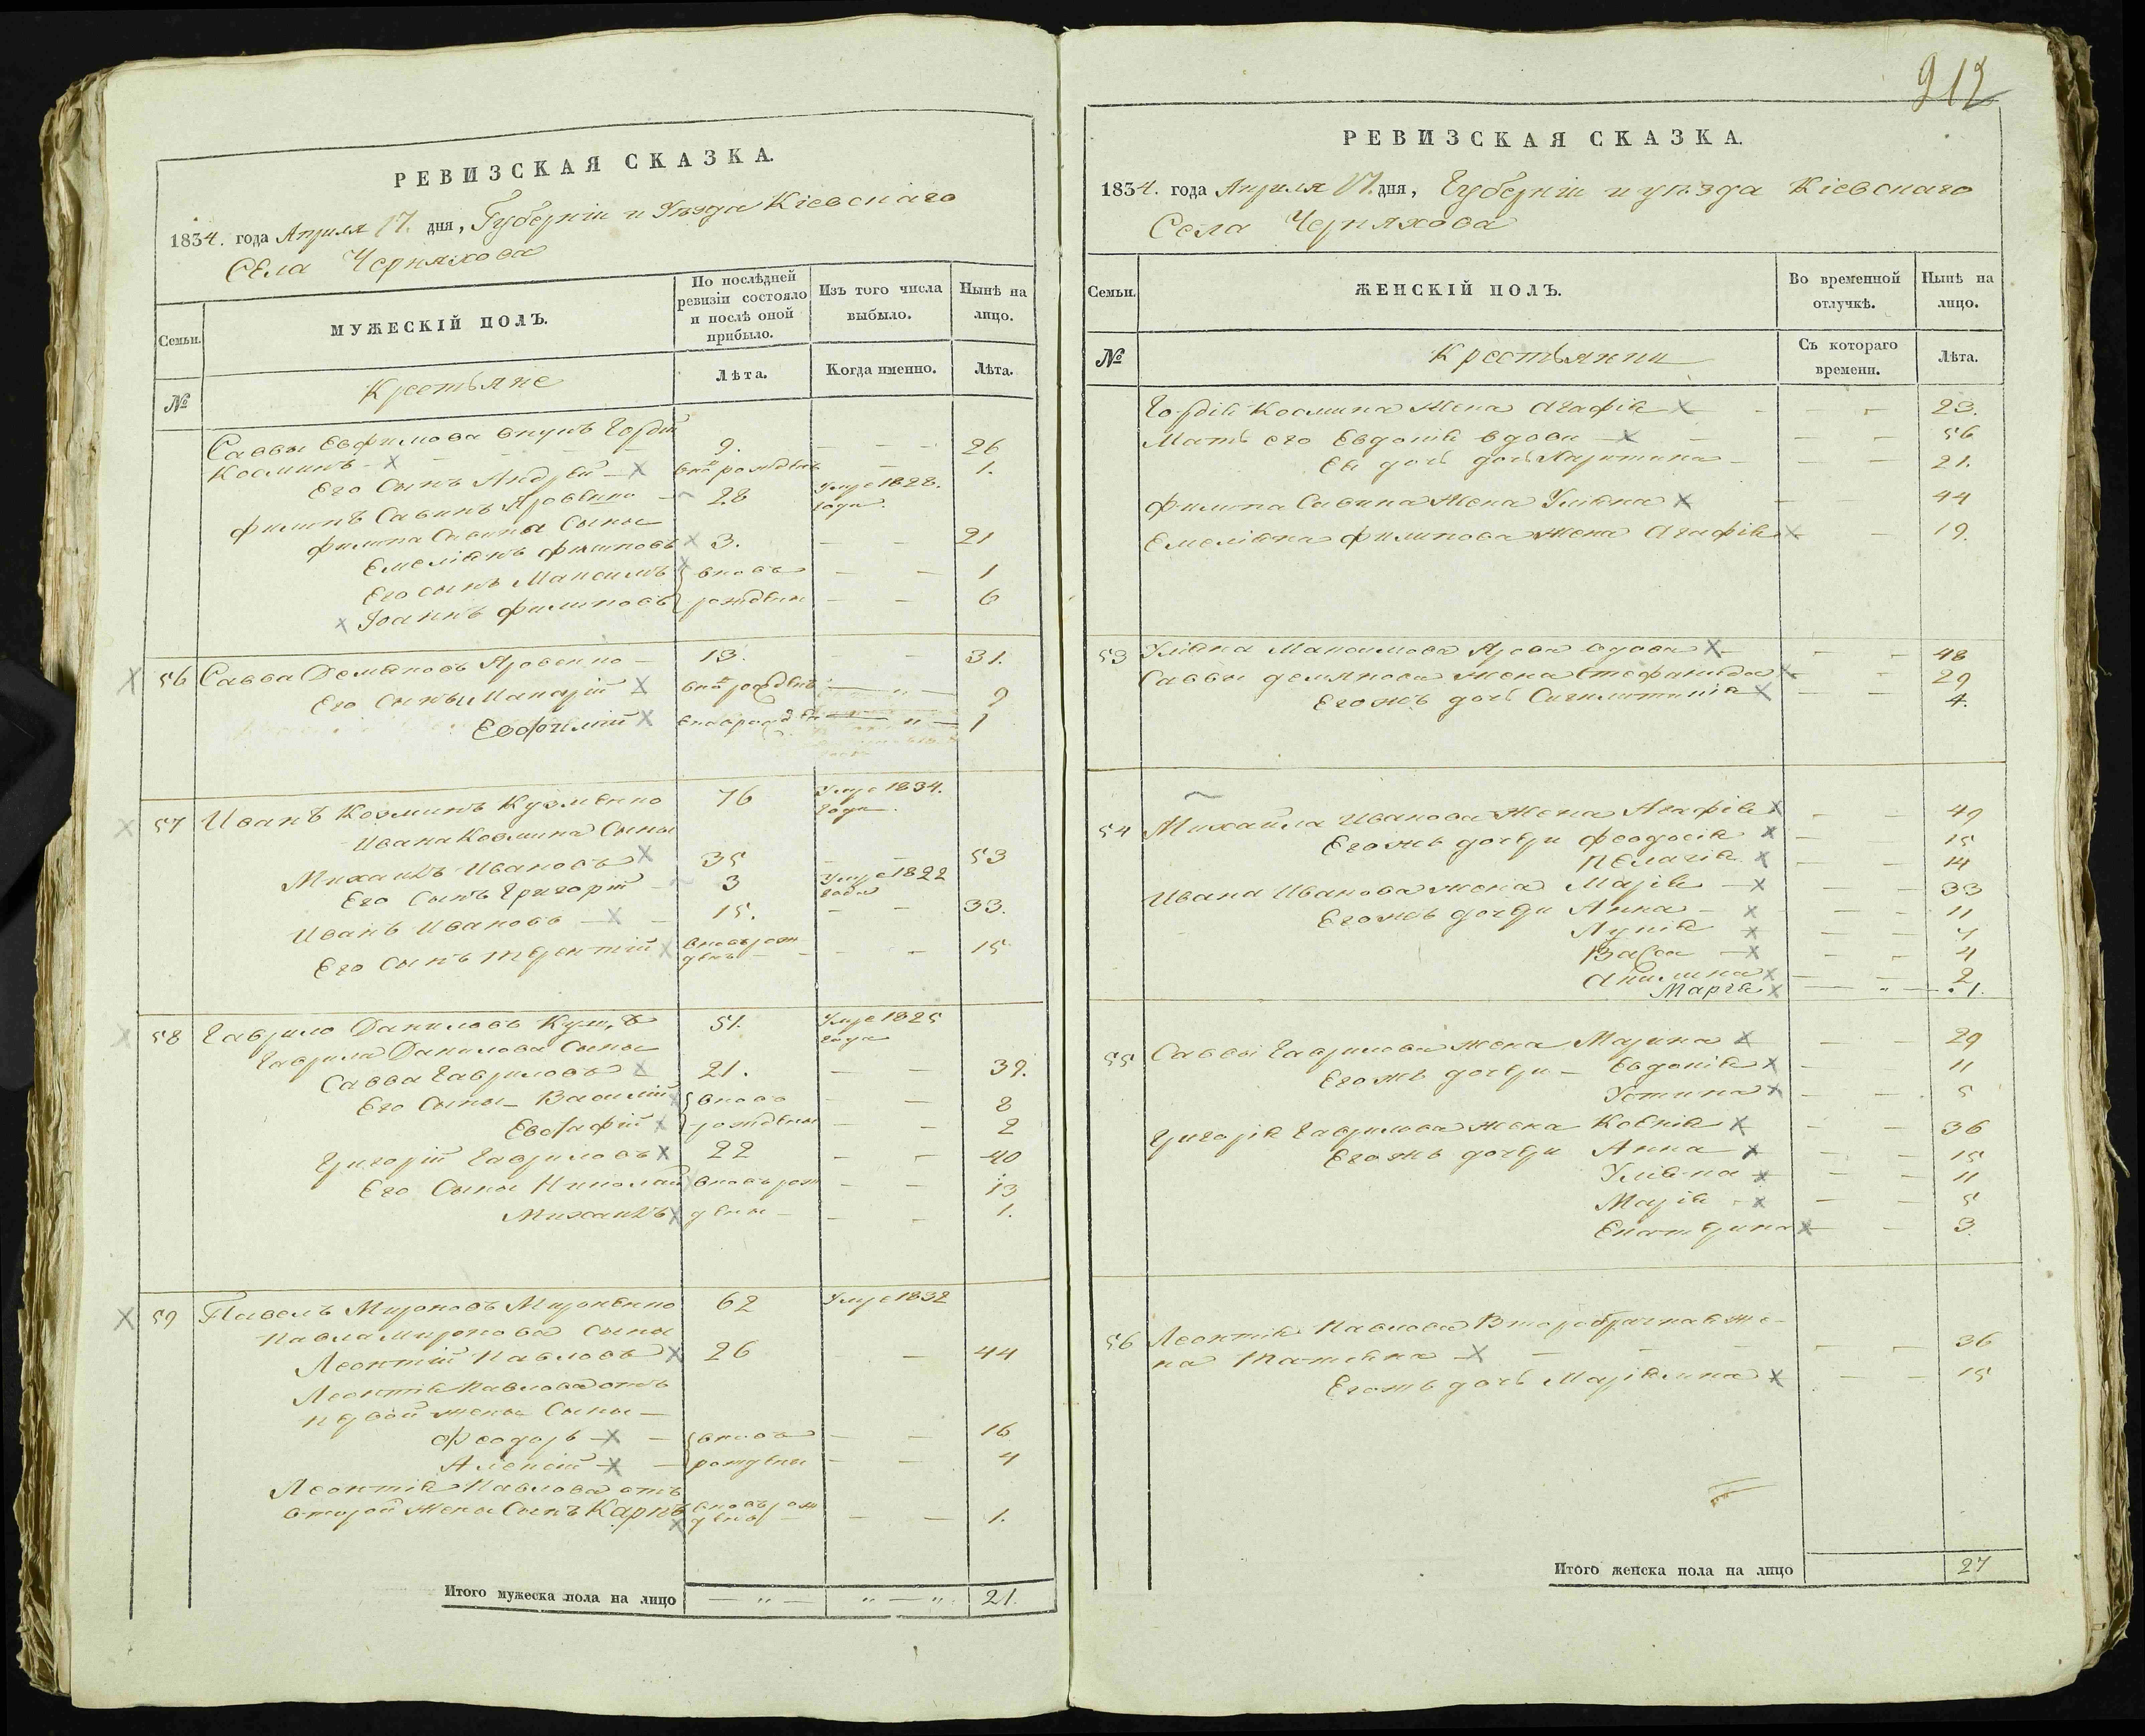 РЕВИЗСКАЯ СКАЗКА.
1834. года Апреля 17. дня, Губерніи и Уѣзда Кіевскаго
Села Черняхова
Семьи.
МУЖЕСКІЙ ПОЛЪ.
По послѣдней ревизіи состояло и послѣ оной прибыло.
Изъ того числа выбыло.
Нынѣ на лицо.
№
Крестьяне
Лѣта.
Когда именно.
Лѣта.
Саввы Евфимова внукъ Гордій
Косминъ - x 9. — — 26
Его Сынъ Андрей - x внѣ рожденъ — 1.
Филипъ Савинъ Яровенко — 28 умре 1828. года.
Филипа Савина Сыны
Емеліянъ Филиповъ x 3. — — 21
Его сынъ Максимъ x вновь — — 1
x Іоаннъ Филиповъ рождены — — 6
x 56 Савва Демяновъ Яровенко — 13. — — 31.
Его Сыны Макарій x внѣ рожденъ — „ — 9
Евфимій x вновь рожден — „ — 1
x 57 Иванъ Козминъ Кузменко 76 Умре 1834. года.
Ивана Козмина Сыны
Михаилъ Ивановъ x 35 — — 53
Его Сынъ Григорій — 3 Умре 1822 года
Иванъ Ивановъ — x — 15. — — 33.
Его Сынъ Терентій x вновь рож
денъ — — — 15
x 58 Гаврило Даниловъ 51. Умре 1825 года
Гаврила Данилова Сыны
Савва Гавриловъ x 21. — — 39.
Его Сыны — Василій x вновь — — 8
Евстафій x рождены — — 2
Григорій Гавриловъ x 22 — — 40
Его Сыны Николай x вновь рож — — 13
Михаилъ x дены — — — 1.
x 59 Павелъ Мироновъ Мироненко 62 Умре 1832
Павла Миронова сыны
Леонтій Павловъ x 26 — — 44
Леонтія Павлова отъ
первой жены Сыны —
Феодоръ — x — вновь — — 16
Алексій — x — рождены — — 4
Леонтія Павлова отъ
второй жены Сынъ Карпъ x вновь рож
денъ — — — 1.
Итого мужеска пола на лицо — „ — „ — „ 21.
912
РЕВИЗСКАЯ СКАЗКА.
1834. года Апреля 17. дня, Губерніи и уѣзда Кіевскаго
Села Черняхова
Семьи.
ЖЕНСКІЙ ПОЛЪ.
Во временной отлучкѣ.
Нынѣ на лицо.
№
Крестьянки
Съ котораго времени.
Лѣта.
Гордія Космина Жена Агафія x — — 23.
Мать его Евдокія вдова — x — — — 56
Ея дочь Христина — — — 21.
Филипа Савина Жена Уліяна x — — 44
Емеліяна Филипова Жена Агафія x — 19.
53 Уліяна Максимова Ярова вдова x — — — 48
Саввы Демянова жена Стефанида x — 29
Егожъ дочь x — — 4.
54 Михайла Иванова Жена Агафія x — — 49
Егожъ дочери Феодосія x — 15
Пелагія x — — 14
Ивана Иванова жена Марія — x — — 33
Егожъ дочери Анна — x — — 11
Лукія x — — 7
Васса — x — — 4
Акилина x — — 2
Марѳа x — „ — 1.
55 Саввы Гаврилова жена Марина x — — 29
Егожъ дочери — Евдокія x — 11
Устина x — — 5
Григорія Гаврилова жена Ксенія x — — 36
Егожъ дочери Анна x — — 15
Уліяна x — — 11
Марія — x — — 5
Екатерина x — — 3.
56 Леонтія Павлова Второбрачная же-
на Татіяна — x — — — — 36
Егожъ дочь Маріяна x — — 15
Итого женска пола на лицо 27